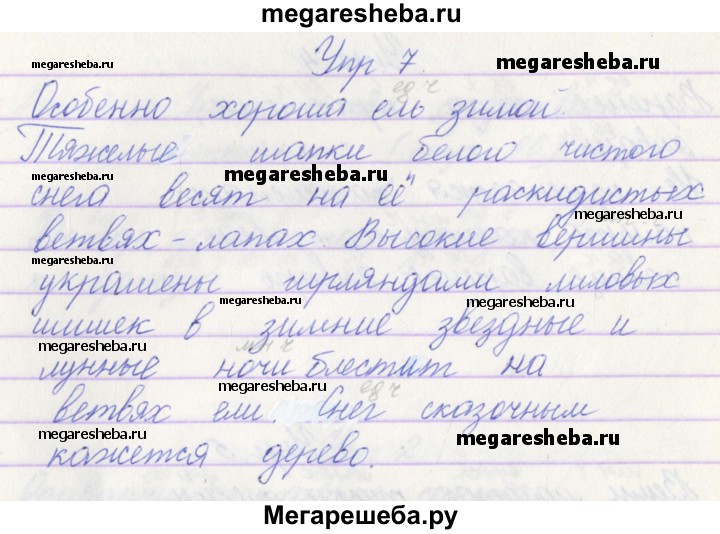 megaresheba.ru
megaresheba.ru Упр 7. megaresheba.ru
ед ч
Особенно хороша ель зимой.
Тяжелые шапки белого чистого
megaresheba.ru megaresheba.ru
снега весят на её раскидистых
megaresheba.ru
ветвях-лапах. Высокие вершины
megaresheba.ru
украшены гирляндами лиловых
megaresheba.ru megaresheba.ru
шишек в зимние звездные и
megaresheba.ru мн ч
лунные ночи блестит на
megaresheba.ru ед ч
ветвях ели. Снег сказочным
megaresheba.ru megaresheba.ru
кажется дерево.
Мегарешеба.ру